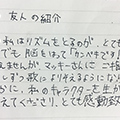 友人の紹介
私はリズムをとるのが、とても
でも脳をはって「カンペキです!
えませんが マッキーさんに ご指
しずつ歌により添えるようになら
かに、私のキャラクターを生か
えてくださり、とても感動致